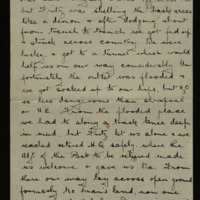 but Fritz was shelling the back areas
like a demon & after dodging about
from trench to trench we got fed up
& struck across country. We were
lucky & got to a tunnel which would
help us on our way considerably. Un-
fortunately the outlet was flooded &
we got soaked up to our hips, but
less dangerous than shrapnel or
H.E. From the flooded place we
had to along a track knee deep
in mud, but Fritz let us alone & we
reached H.Q. safely, where the
Adj. of the Batt. to be relieved made
us welcome & gave us tea. From
there our way lay across open ground
formerly No man's land, now one